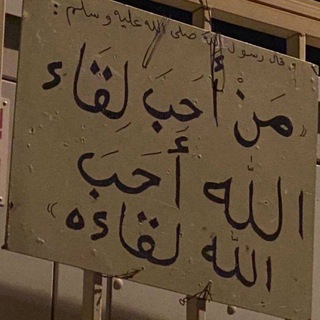 قال رسول الله صلى الله عليه وسلم :
« مَنْ أَحَبَ لِقَاء
الله أَحَبَ
الله لقاءه »